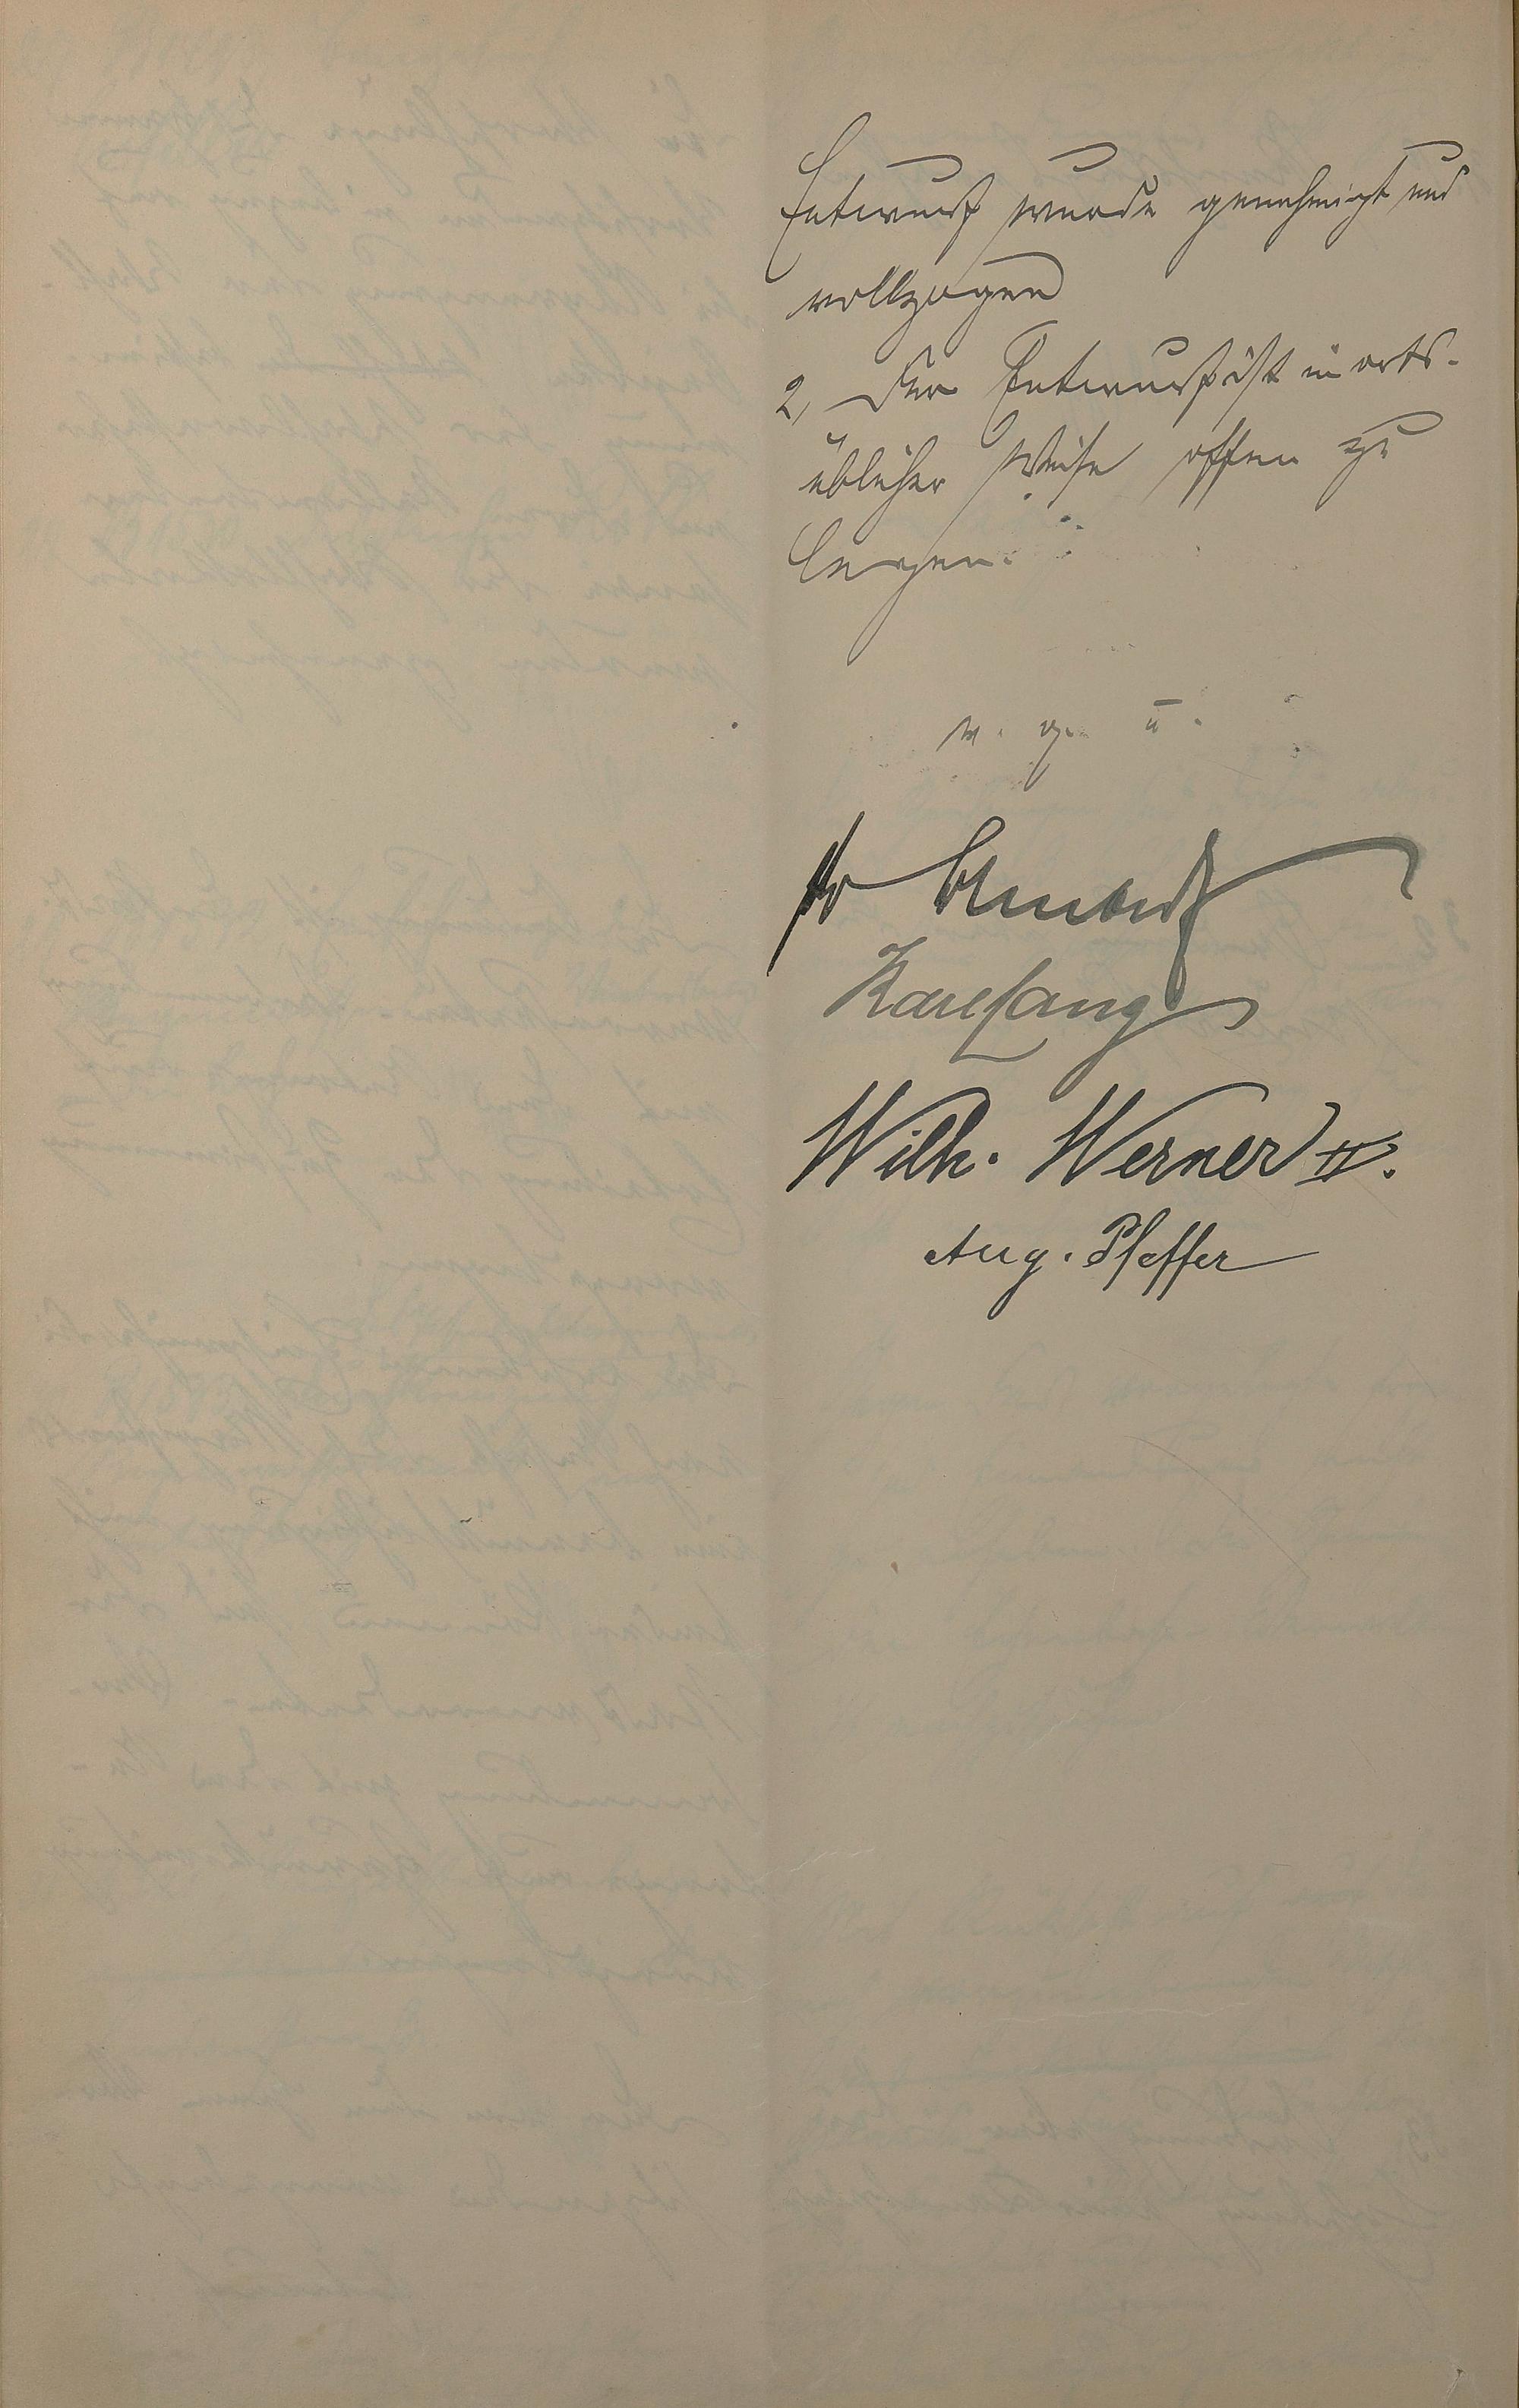 Entwurf wurde genehmigt und
vollzogen
2, Der Entwurf ist in orts-
üblicher Weise offen zu
legen.
v. g. u.
Karl Lang
Wilh. Werner II.
Aug. Pfeffer